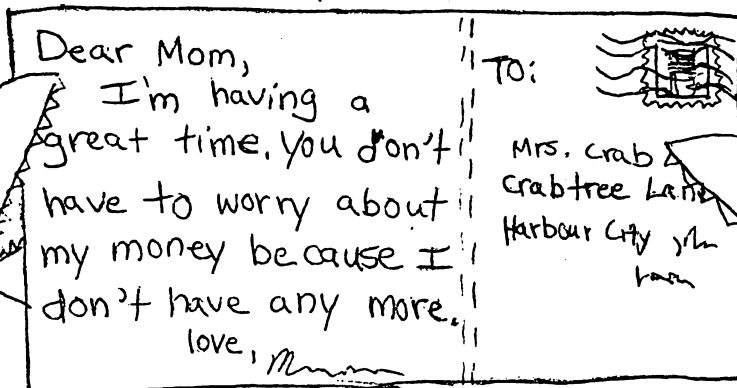 Dear Mom,
I'm having a
great time. You don't
have to worry about
my money because I
don't have any more.
love,
TO:
Mrs. Crab
Crabtree Lane
Harbour City